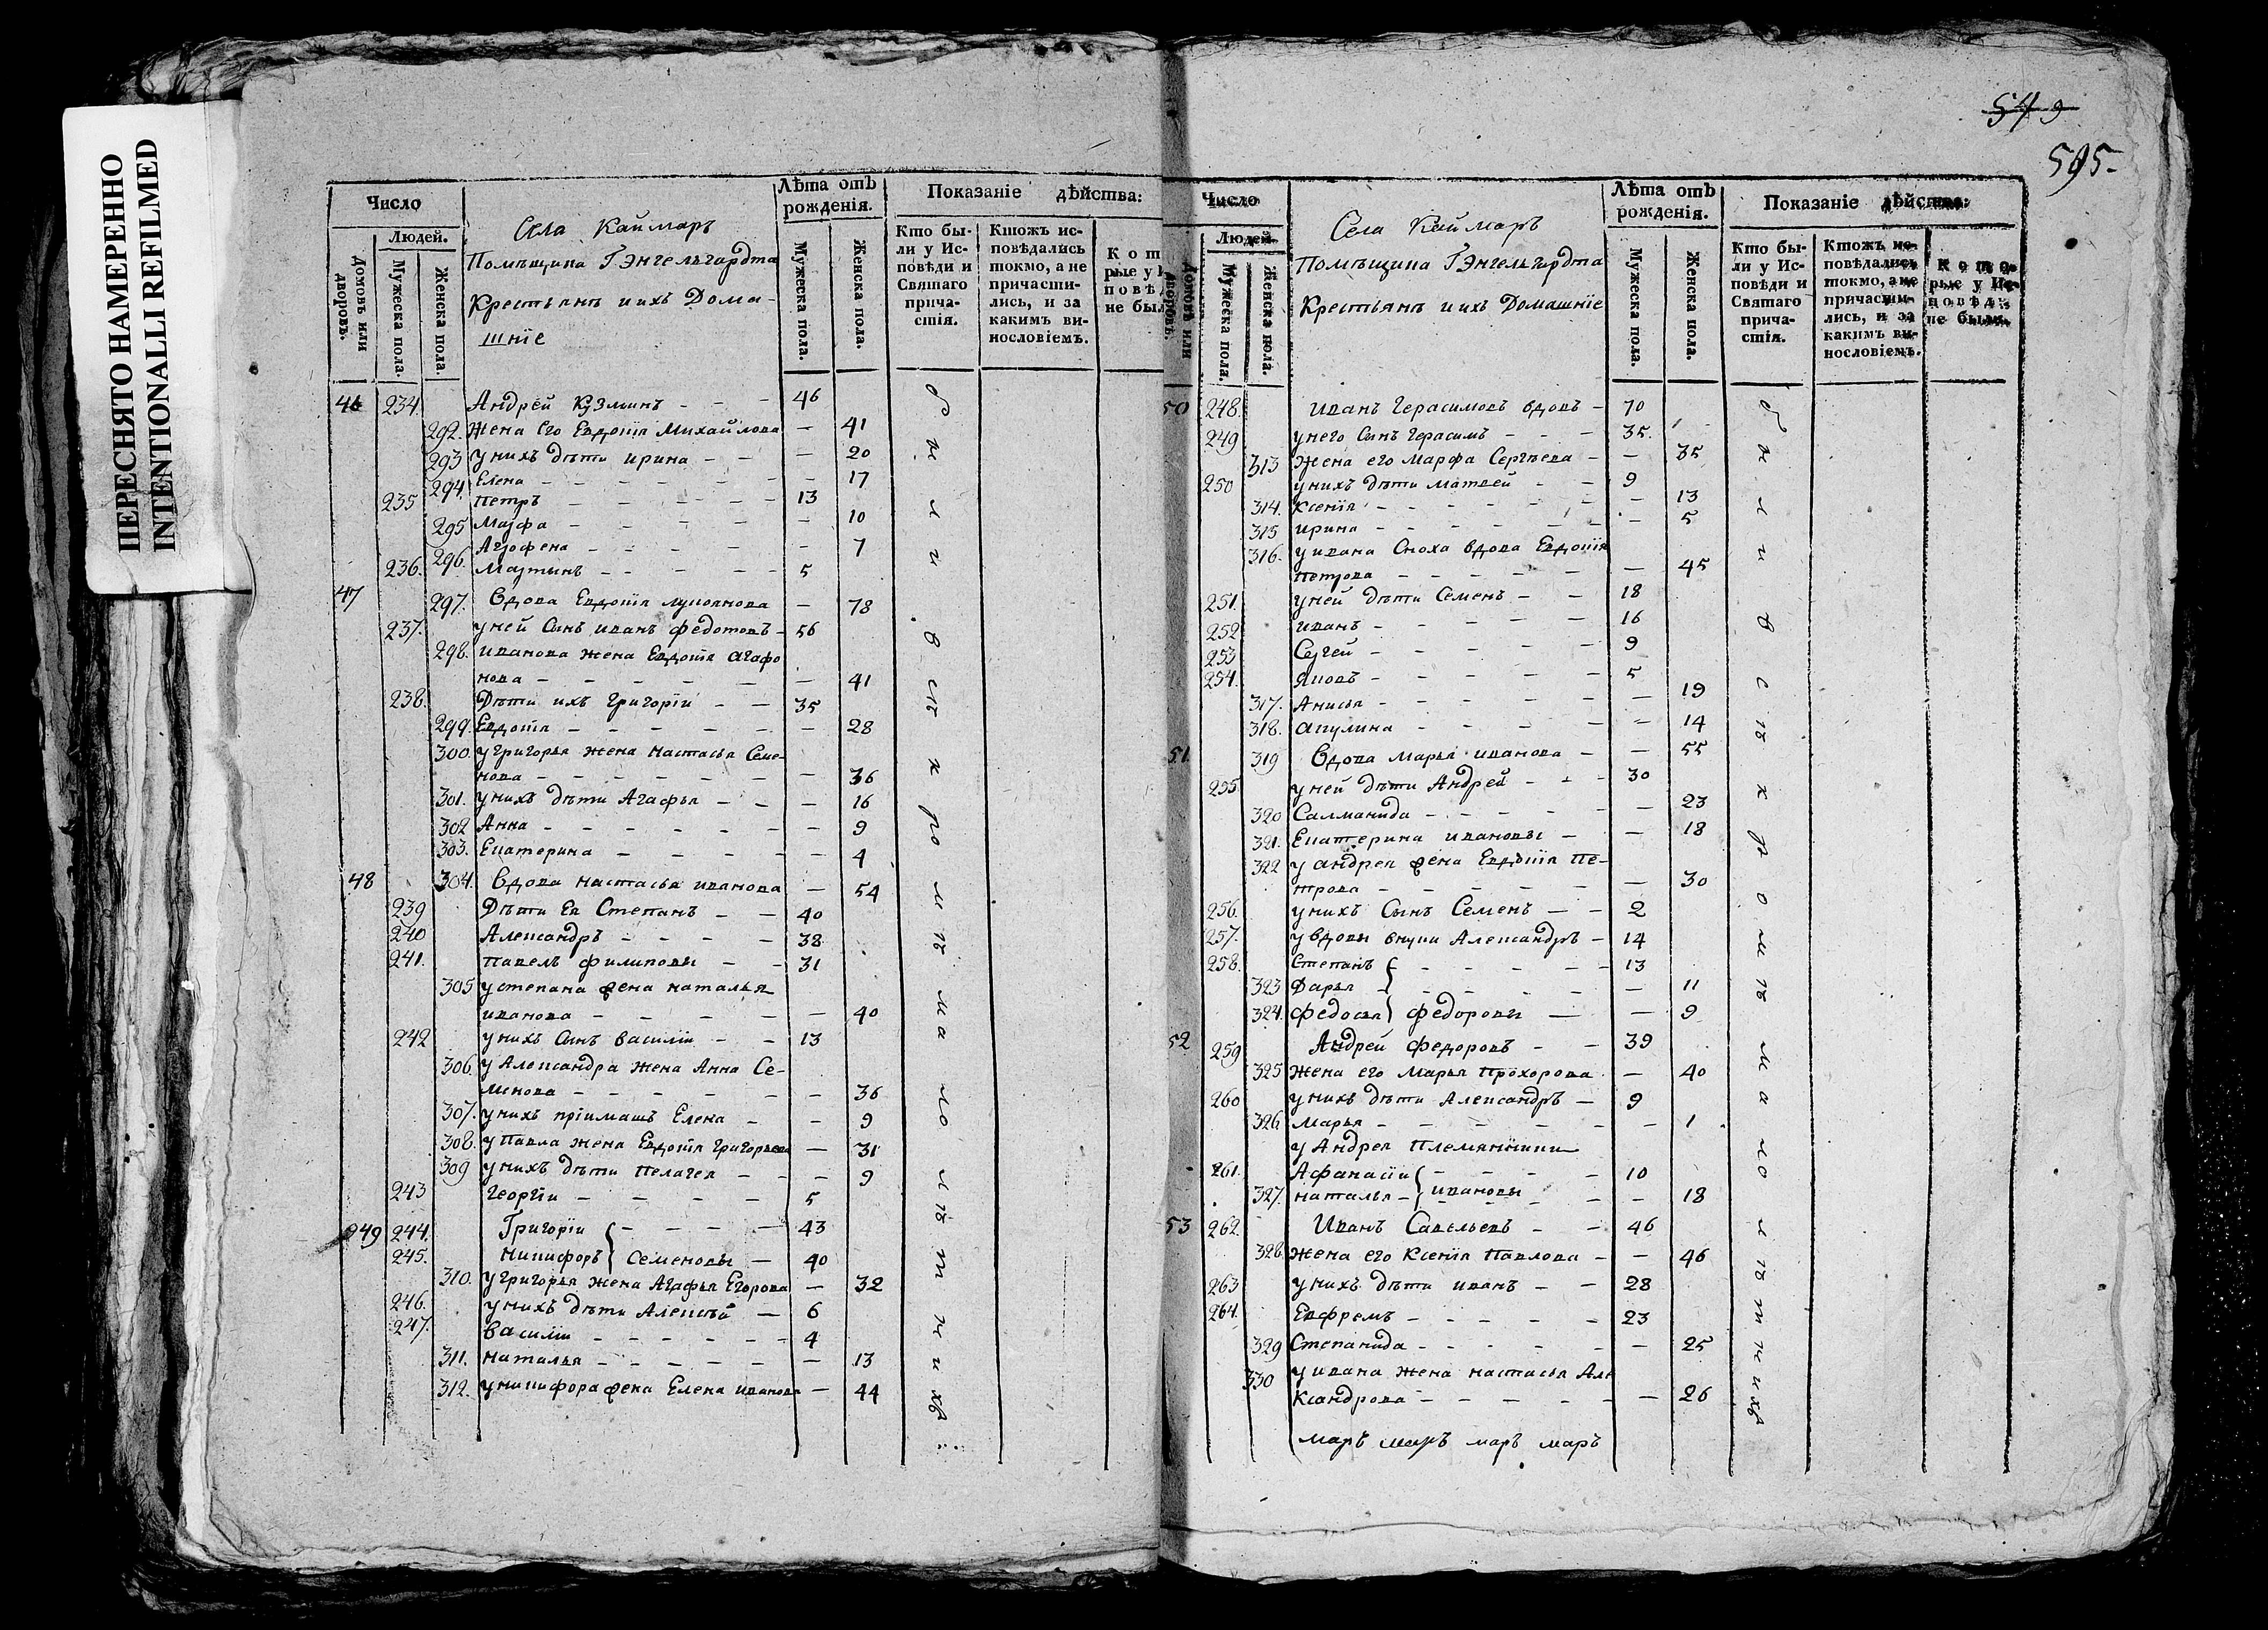 ПЕРЕСНЯТО НАМЕРЕННО
INTENTIONALLI REFILMED
549
595.
Число
Людей.
Домовъ или дворовъ.
Мужеска пола.
Женска пола.
Села Каймаръ
Помѣщика Гэнгельгардта
Крестьянъ и ихъ Дома-
шніе
Лѣта отъ рожденія.
Мужеска пола.
Женска пола.
Показаніе дѣйства:
Кто бы-
ли у Ис-
повѣди и
Святаго
прича-
стія.
Ктожъ ис-
повѣдались
токмо, а не
причасти-
лись, и за
какимъ ви-
нословіемъ.
Кот
рые у И
повѣд
не был
46 234. Андрей Кузминъ - - - 46
292. жена его Евдокія Михайлова — 41
293 у нихъ дѣти ирина - - — 20
294. Елена - - - - - - 17
235 петръ - - - - - 13
295 Марфа - - - - - 10
296. Агрофена - - - - - 7
236. Мартынъ - - - - - 5
47 297. вдова Евдокія лукоянова — 78
237. у ней Сынъ иванъ федотовъ - 56
298. иванова жена Евдокія агафо
нова - - - - - — 41
238. Дѣти ихъ Григорій - - 35
299. Евдокія - - - - - - 28
300. у григорья жена настасья Семе-
нова - - - - - - — 36
301. у нихъ дѣти Агафья - - — 16
302 Анна - - - - - - - 9
303. Екатерина - - - - - 4
48 304. вдова настасья иванова — 54
239 Дѣти Ея Степанъ - - 40
240 Александръ - - - - 38
241. павелъ филиповы - - 31
305 у степана жена наталья
иванова - - - - — 40
242 у нихъ Сынъ василіи - - 13
306. у Александра жена Анна Се-
менова - - - - - - 36
307. у нихъ пріимашъ Елена - - 9
308. у павла жена Евдокія григорьева — 31
309 у нихъ дѣти пелагея - - - 9
243 георгіи - - - - 5
49 244. Григоріи - - - - 43
245. никифоръ } Семеновы — 40
310. у григорья жена Агафья Егорова — 32
246. у нихъ дѣти Алексѣй — 6
247. василіи - - - - - 4
311. наталья - - - - - — 13
312. у никифора жена Елена иванова — 44
были въ скромъ маломъ
Число
Людей.
Домовъ или дворовъ.
Мужеска пола.
Женска пола.
Села Каймаръ
Помѣщика Гэнгельгардта
Крестьянъ и ихъ Домашніе
Лѣта отъ рожденія.
Мужеска пола.
Женска пола.
Показаніе дѣйства:
Кто бы-
ли у Ис-
повѣди и
Святаго
прича-
стія.
Ктожъ ис-
повѣдались
токмо, а не
причасти-
лись, и за
какимъ ви-
нословіемъ.
Кото-
рые у Ис-
повѣд:
не были.
50 248. иванъ герасимовъ вдовъ - 70
249 у него Сынъ герасимъ - - - 35.
313 жена его марфа Сергѣева - — 35
250 у нихъ дѣти матвей - - 9
314. ксенія - - - - - - 13
315 ирина - - - - - - 5
316. у ивана Сноха вдова Евдокія
петрова - - - - - — 45
251. у ней дѣти Семенъ - - 18
252 иванъ - - - - - 16
253 Сергей - - - - - 9
254. яковъ - - - - - 5
317. Анисья - - - - - — 19
318. акулина - - - - - 14
51. 319 вдова марья иванова - — 55
255 у ней дѣти Андрей - - - 30
320 Саламанида - - - - - — 23
321. Екатерина ивановы - — 18
322 у андрея жена Евдокія пе-
трова - - - - - — 30
256. у нихъ Сынъ Семенъ - - 2
257. у вдовы внуки Александръ - 14
258. Степанъ { - - - - - 13
323 Дарья - - - - - — 11
324. федосья } федоровы — — 9
52 259 Андрей федоровъ - - 39
325 жена его марья прохорова — 40
260 у нихъ дѣти Александръ — 9
326 марья - - - - - 1
у Андрея племянники
261. Афанасіи { - - - - 10
327. наталья - } ивановы - - 18
53 262. Иванъ Савельевъ - - 46
328. жена его ксенія павлова - — 46
263 у нихъ дѣти иванъ - - 28
264. Евфремъ - - - - - 23
329 Степанида - - - - - - 25
330 у ивана жена настасья Але
ксандрова - - - - - — 26
маръ маръ маръ маръ